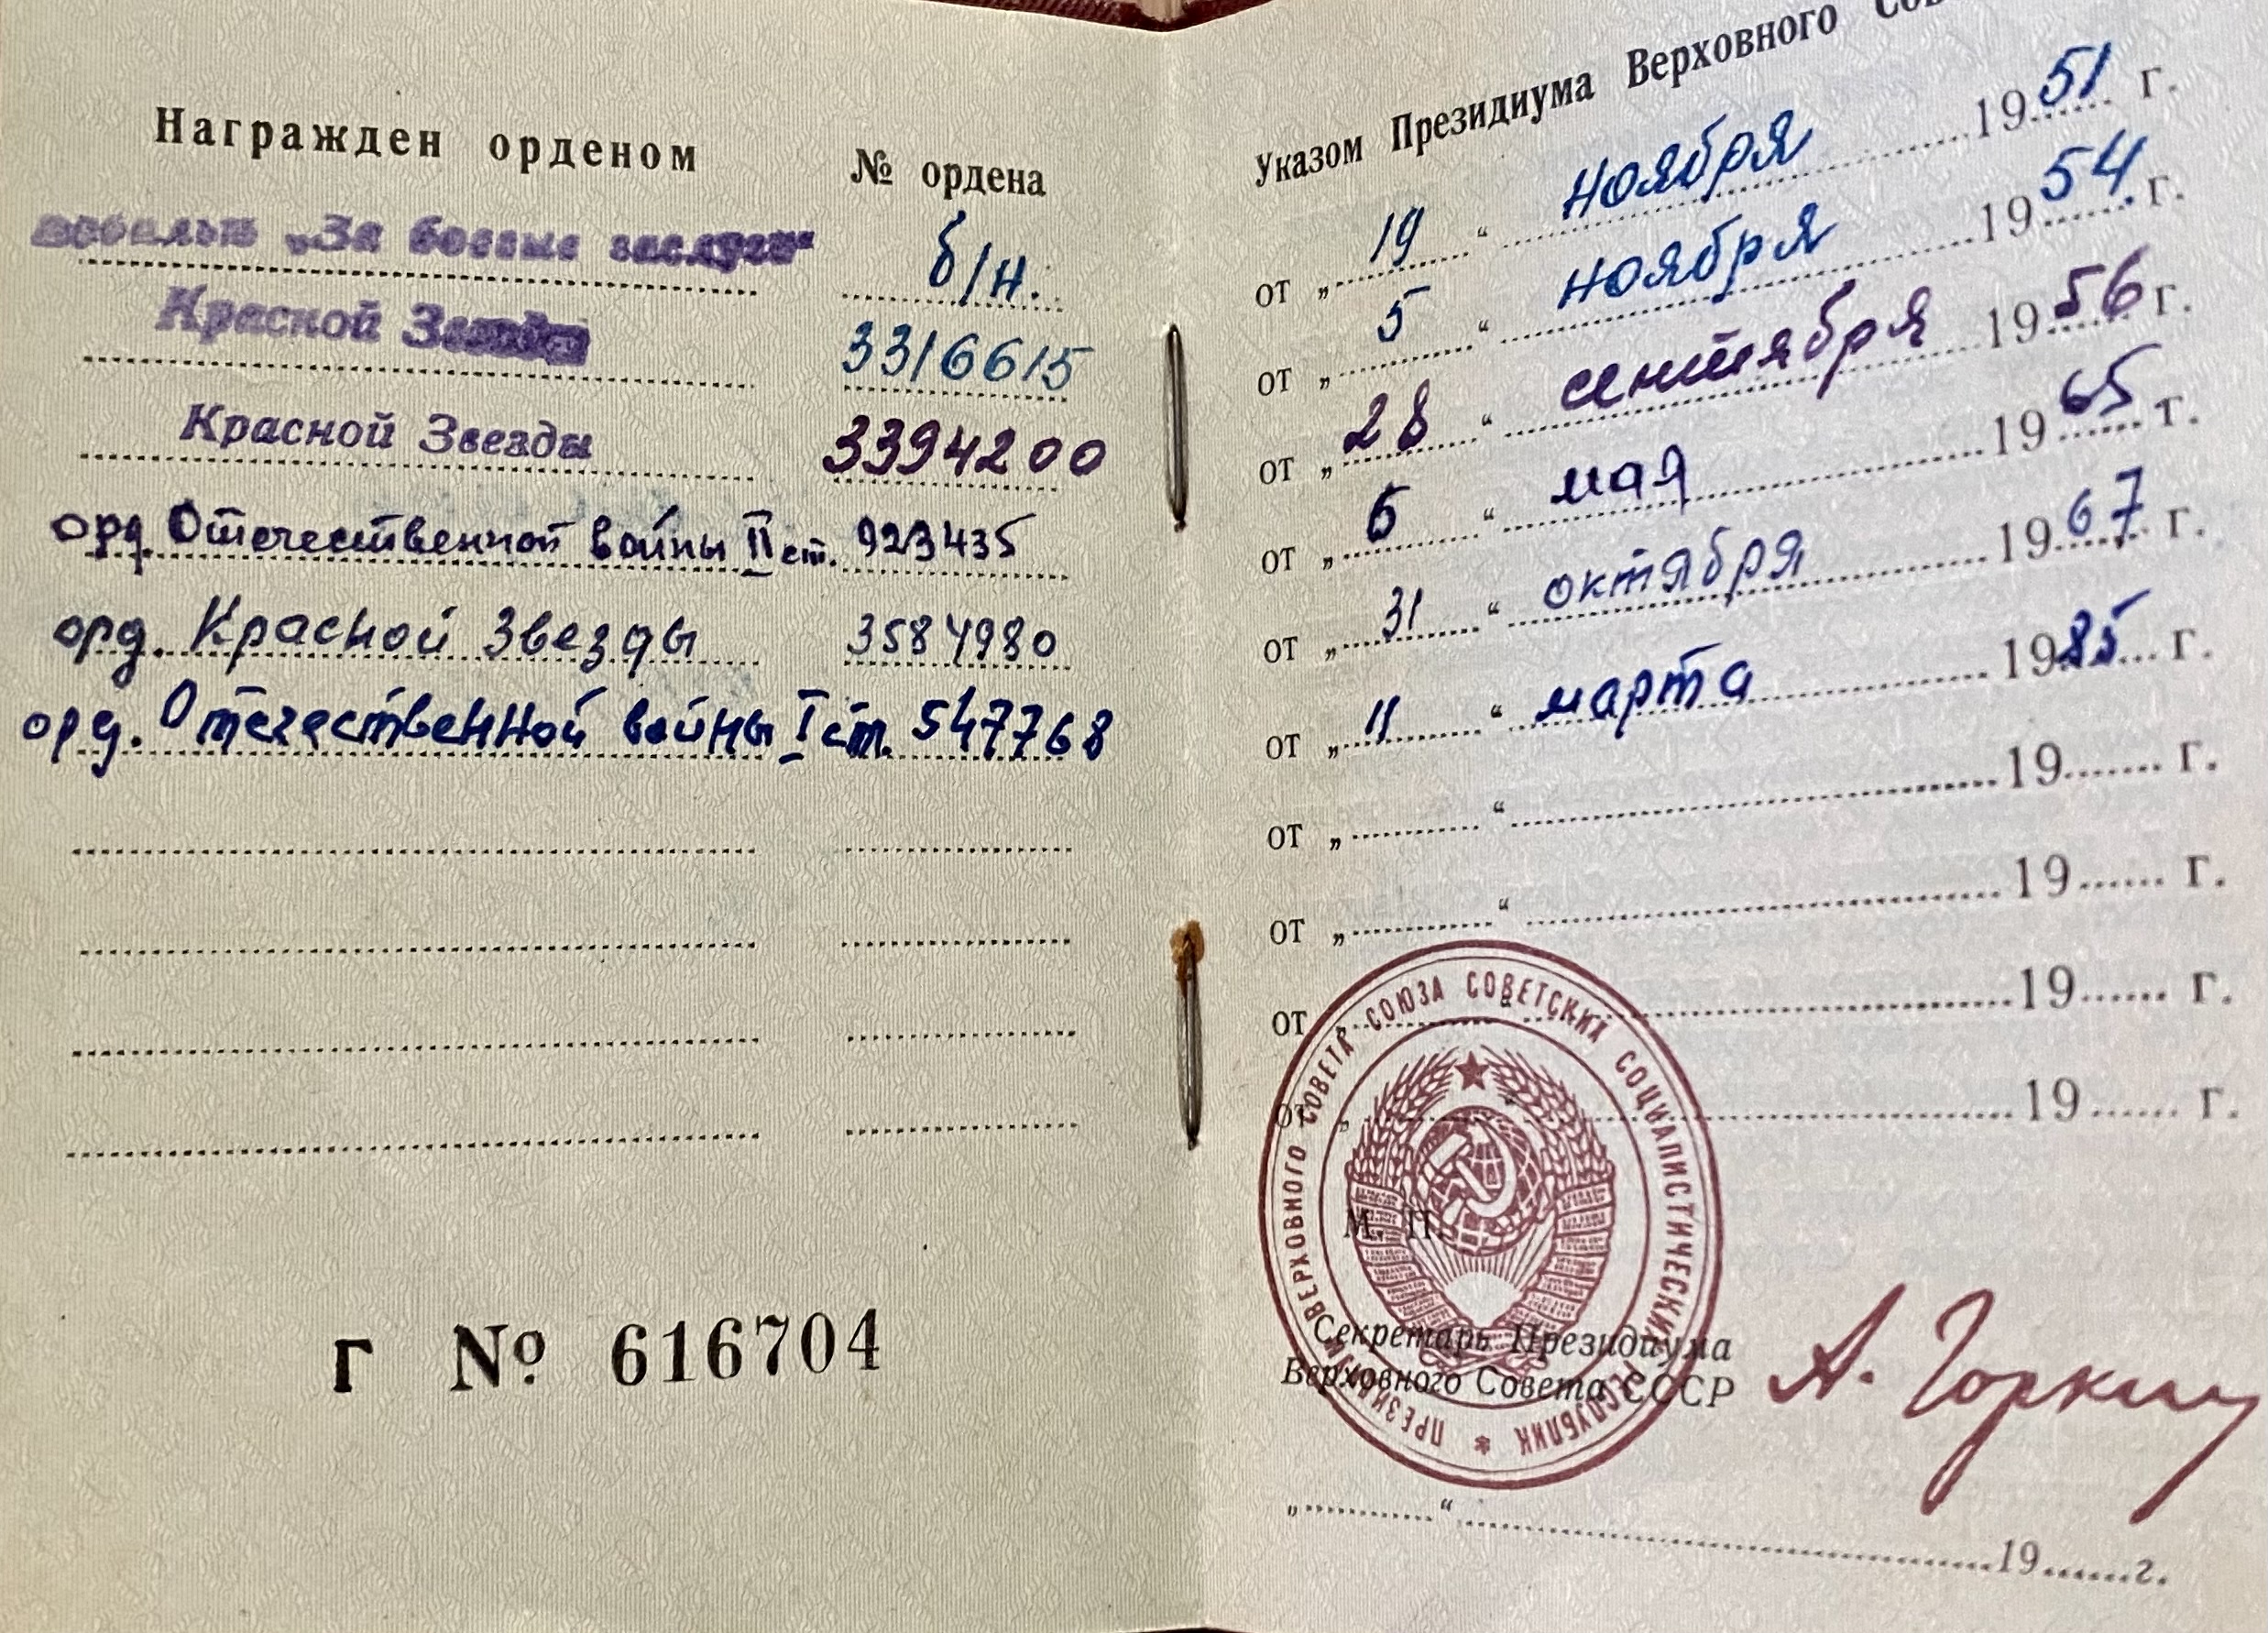 Награжден орденом № ордена
медалью „За боевые заслуги“ б/н.
Красной Звезды 3316615
Красной Звезды 3394200
орд. Отечественной войны II ст. 923435
орд. Красной Звезды 3584980
орд. Отечественной войны I ст. 547768
Г № 616704
Указом Президиума Верховного
от „ 19 “ ноября 1951 г.
от „ 5 “ ноября 1954 г.
от „ 28 “ сентября 1956 г.
от „ 6 “ мая 1965 г.
от „ 31 “ октября 1967 г.
от „ 11 “ марта 1985 г.
от „ “ 19 г.
от „ “ 19 г.
от „ “ 19 г.
от „ “ 19 г.
ПРЕЗИДИУМ ВЕРХОВНОГО СОВЕТА СОЮЗА СОВЕТСКИХ СОЦИАЛИСТИЧЕСКИХ РЕСПУБЛИК *
М. П.
Секретарь Президиума
Верховного Совета СССР А. Горкин
„ “ 19 г.